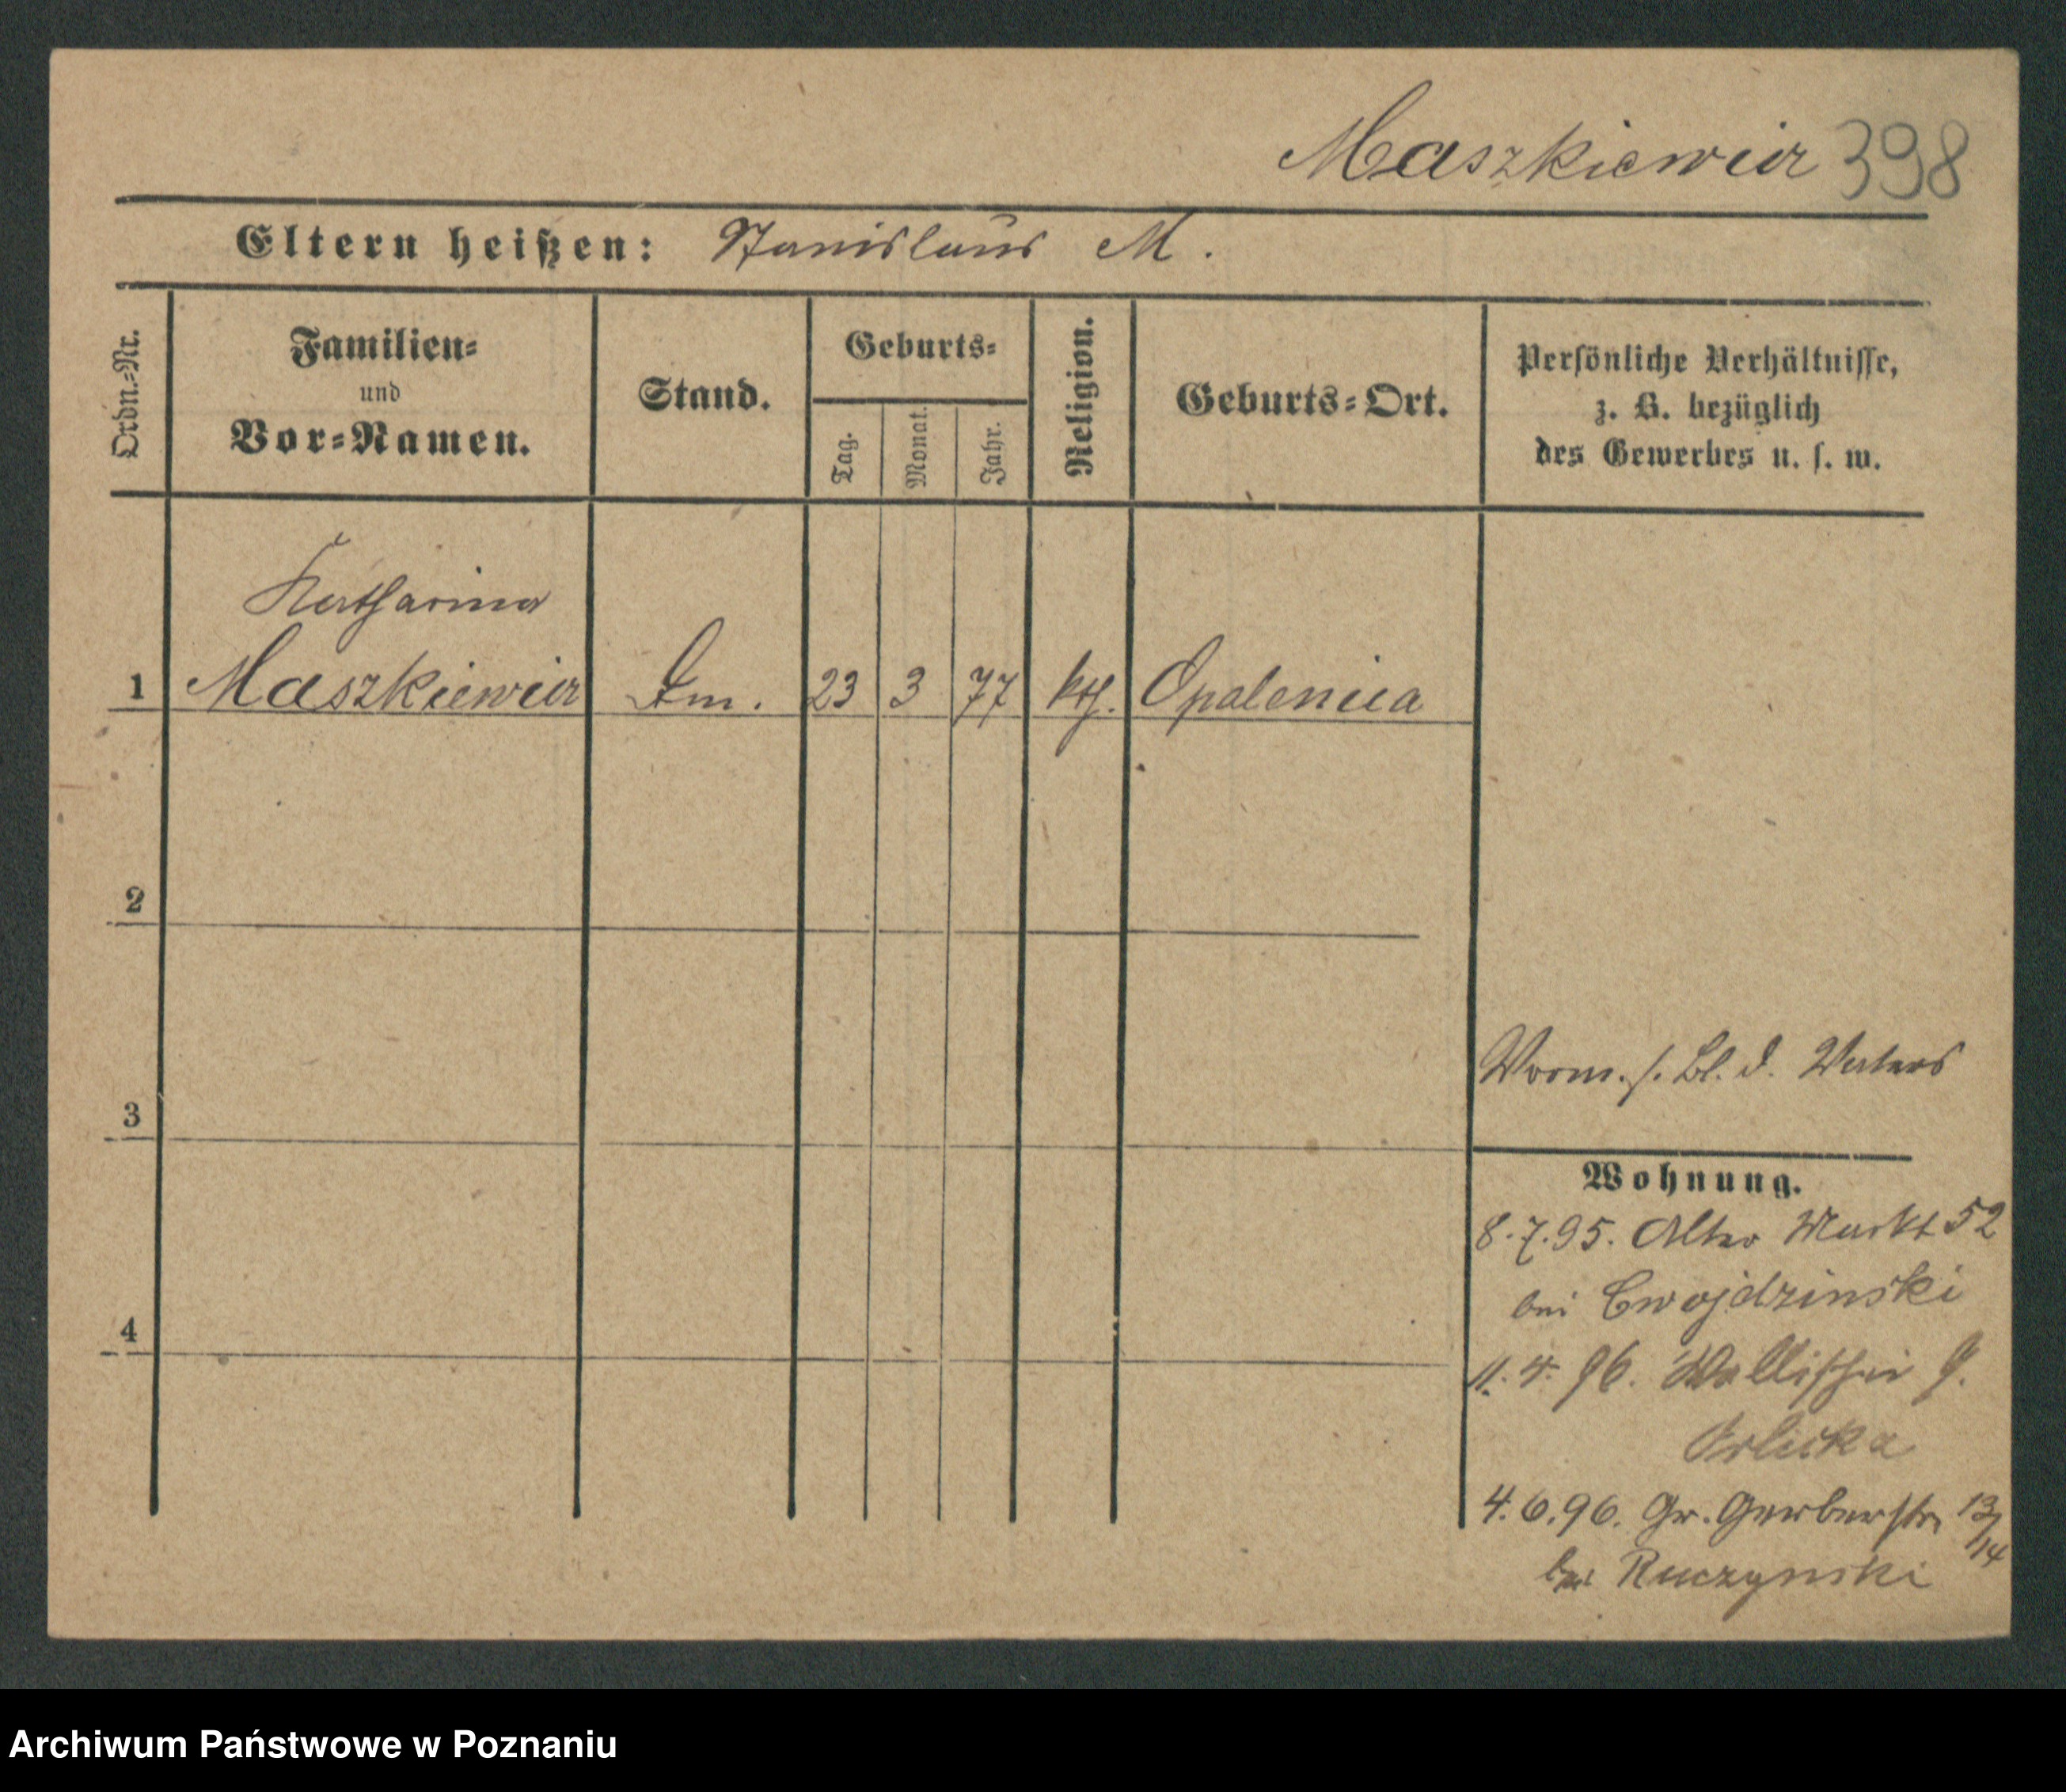 Maszkiewicz 398
Eltern heißen: Stanislaus M.
Ordn.=Nr.
Familien=
und
Vor=Namen.
Stand.
Geburts=
Tag.
Monat.
Jahr.
Religion.
Geburts=Ort.
Persönliche Verhältnisse,
z. B. bezüglich
des Gewerbes u. s. w.
Katharina
1 Maszkiewicz 23 3 77 kth. Opalenica
2
3
4
Vorm. s. Bl. d. Vaters
Wohnung.
8.7.95. Alter Markt 52
bei Cwojdzinski
11.4.96. Wallischei 9.
Orlicka
4.6.96. Gr. Gerberstr. 13/14
bei Ruczynski
Archiwum Państwowe w Poznaniu